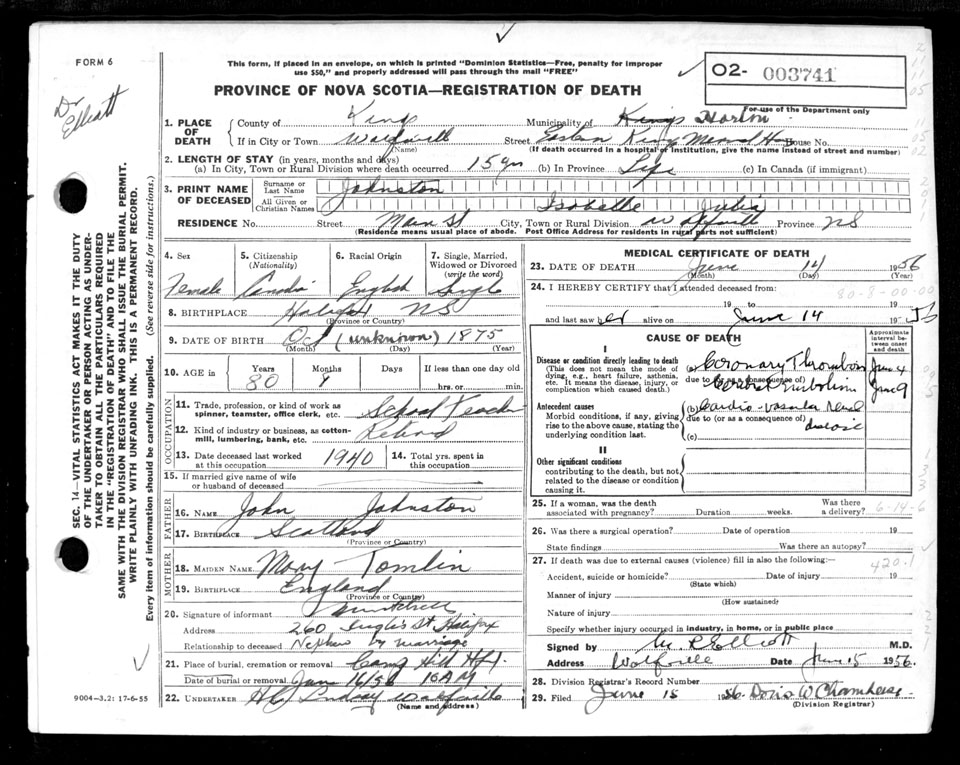 FORM 6
Dr Elliott
This form, if placed in an envelope, on which is printed "Dominion Statistics—Free, penalty for improper
use $50," and properly addressed will pass through the mail "FREE"
PROVINCE OF NOVA SCOTIA—REGISTRATION OF DEATH
O2- 003741
For use of the Department only
1. PLACE OF DEATH
County of Kings Municipality of Kings Horton
If in City or Town Wolfville Street Eastern Kings House No.
(Name) (If death occurred in a hospital or institution, give the name instead of street and number)
2. LENGTH OF STAY (in years, months and days)
(a) In City, Town or Rural Division where death occurred 15 yrs (b) In Province Life (c) In Canada (if immigrant)
3. PRINT NAME OF DECEASED
Surname or Last Name Johnston
All Given or Christian Names Isabelle Julia
RESIDENCE No. Street Main St City, Town or Rural Division Wolfville Province NS
(Residence means usual place of abode. Post Office Address for residents in rural parts not sufficient)
4. Sex Female
5. Citizenship (Nationality) Canada
6. Racial Origin English
7. Single, Married, Widowed or Divorced (write the word) Single
8. BIRTHPLACE Halifax NS
(Province or Country)
9. DATE OF BIRTH Oct (unknown) 1875
(Month) (Day) (Year)
10. AGE in Years 80 Months 8 Days If less than one day old hrs. or min.
OCCUPATION
11. Trade, profession, or kind of work as spinner, teamster, office clerk, etc. School Teacher
12. Kind of industry or business, as cotton-mill, lumbering, bank, etc. Retired
13. Date deceased last worked at this occupation 1940
14. Total yrs. spent in this occupation
15. If married give name of wife or husband of deceased
FATHER
16. NAME John Johnston
17. BIRTHPLACE Scotland
(Province or Country)
MOTHER
18. MAIDEN NAME Mary Tomlin
19. BIRTHPLACE England
(Province or Country)
20. Signature of informant
Address 260 Inglis St Halifax
Relationship to deceased Nephew by marriage
21. Place of burial, cremation or removal Camp Hill Hfx.
Date of burial or removal June 16/56 10 AM
22. UNDERTAKER Lindsay Wolfville
(Name and address)
MEDICAL CERTIFICATE OF DEATH
23. DATE OF DEATH June 14 1956
(Month) (Day) (Year)
24. I HEREBY CERTIFY that I attended deceased from:
80-8-00-00
19 to 19
and last saw her alive on June 14 1956
CAUSE OF DEATH
Approximate interval between onset and death
I
Disease or condition directly leading to death
(This does not mean the mode of dying, e.g., heart failure, asthenia, etc. It means the disease, injury, or complication which caused death.)
(a) Coronary Thrombosis June 4
due to (or as a consequence of)
Cerebral Embolism June 9
Antecedent causes
Morbid conditions, if any, giving rise to the above cause, stating the underlying condition last.
(b) Cardio-vascular Renal disease
due to (or as a consequence of)
(c)
II
Other significant conditions
contributing to the death, but not related to the disease or condition causing it.
25. If a woman, was the death associated with pregnancy? Duration weeks. Was there a delivery?
6-14-6
26. Was there a surgical operation? Date of operation 19
State findings Was there an autopsy?
27. If death was due to external causes (violence) fill in also the following:
420.1
Accident, suicide or homicide? Date of injury 19
(State which)
Manner of injury
(How sustained)
Nature of injury
Specify whether injury occurred in industry, in home, or in public place
Signed by M. R. Elliott M.D.
Address Wolfville Date June 15 1956.
28. Division Registrar's Record Number
29. Filed June 15 1956 Doris W Chambers
(Division Registrar)
SEC. 14—VITAL STATISTICS ACT MAKES IT THE DUTY
OF THE UNDERTAKER OR PERSON ACTING AS UNDER-
TAKER TO OBTAIN ALL THE PARTICULARS REQUIRED
IN THE "REGISTRATION OF DEATH" AND TO FILE THE
SAME WITH THE DIVISION REGISTRAR WHO SHALL ISSUE THE BURIAL PERMIT.
WRITE PLAINLY WITH UNFADING INK. THIS IS A PERMANENT RECORD.
Every item of information should be carefully supplied. (See reverse side for instructions.)
9004-3.2: 17-6-55